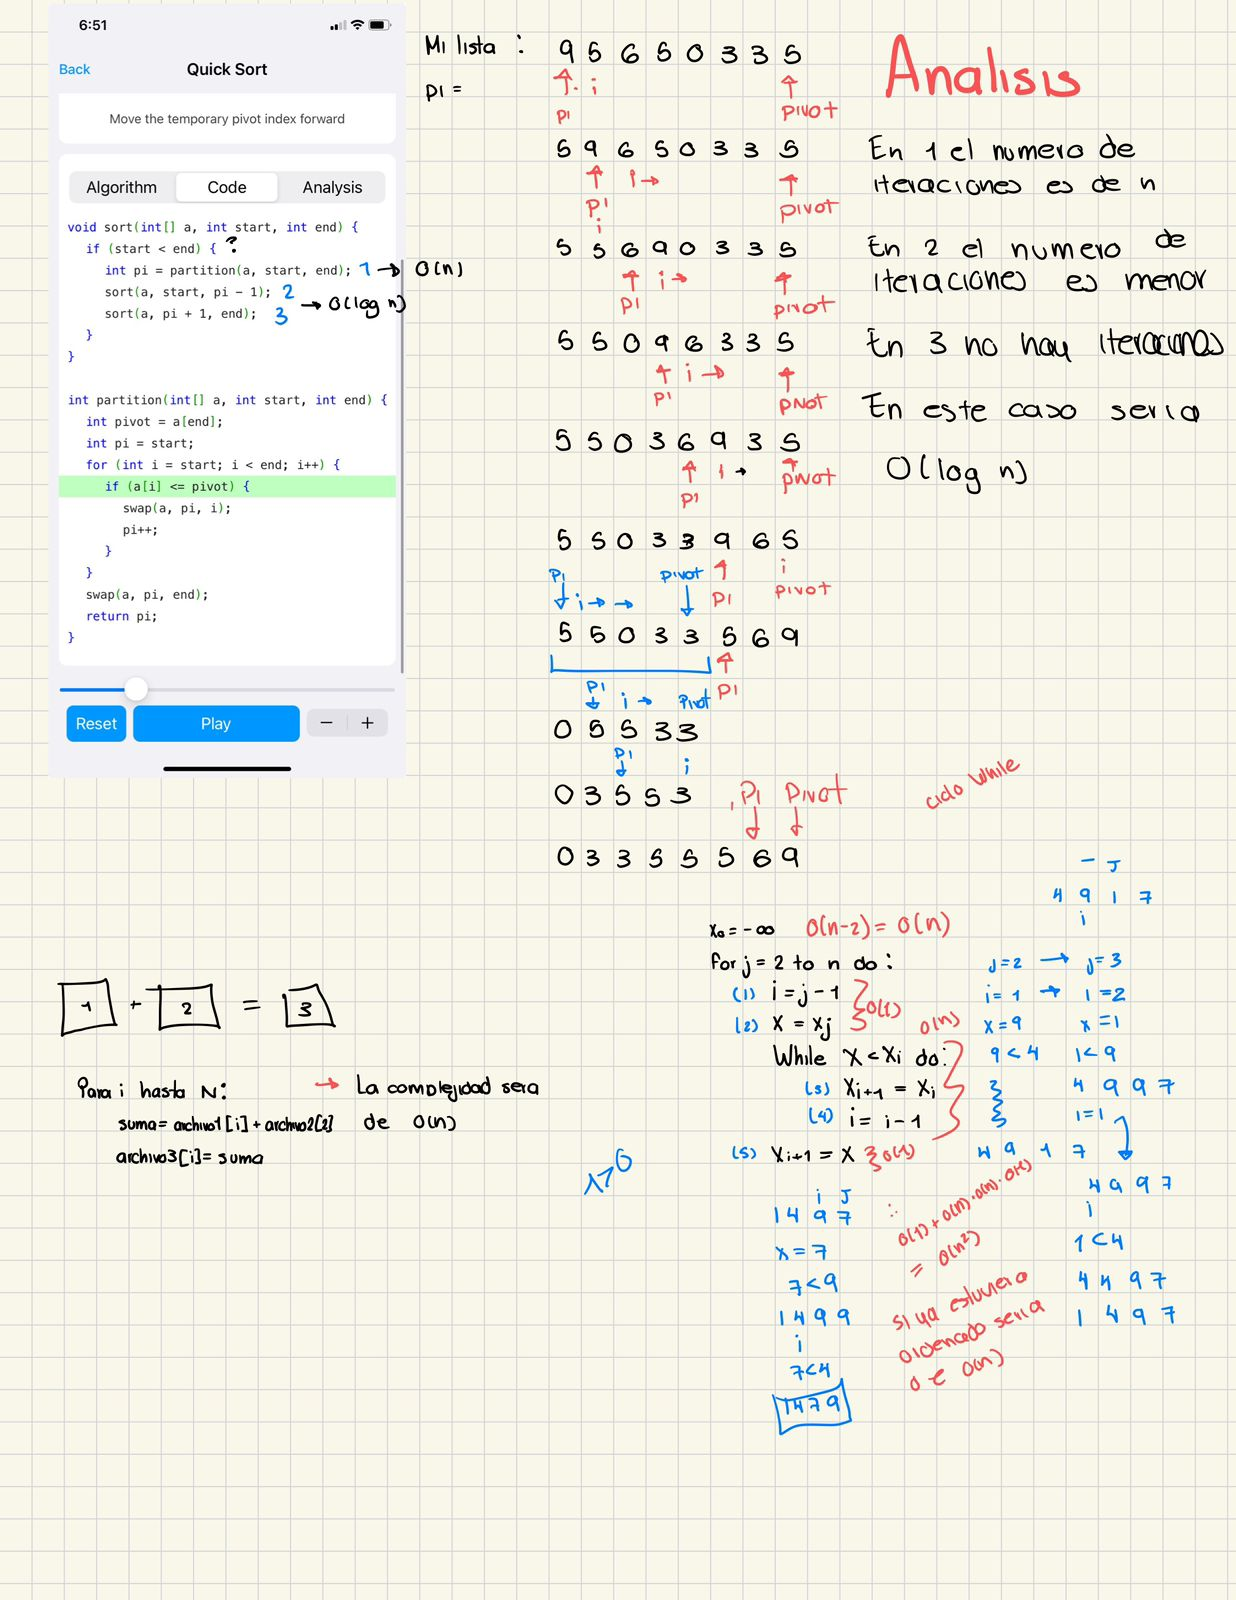 6:51
Back
Quick Sort
Move the temporary pivot index forward
Algorithm
Code
Analysis
void sort(int[] a, int start, int end) {
if (start < end) { ?
int pi = partition(a, start, end); 1 → O(n)
sort(a, start, pi - 1); 2
→ O(log n)
sort(a, pi + 1, end); 3
}
}
int partition(int[] a, int start, int end) {
int pivot = a[end];
int pi = start;
for (int i = start; i < end; i++) {
if (a[i] <= pivot) {
swap(a, pi, i);
pi++;
}
}
swap(a, pi, end);
return pi;
}
Reset
Play
− +
Mi lista : 9 5 6 5 0 3 3 5
PI =
↑ i ↑
PI Pivot
5 9 6 5 0 3 3 5
↑ i → ↑
PI pivot
i
5 5 6 9 0 3 3 5
↑ i → ↑
PI pivot
5 5 0 9 6 3 3 5
↑ i → ↑
PI pivot
5 5 0 3 6 9 3 5
↑ i → ↑
PI pivot
5 5 0 3 3 9 6 5
PI pivot ↑ i
↓ i → → ↓ PI pivot
5 5 0 3 3 5 6 9
↑
PI i → Pivot PI
↓
0 5 5 3 3
PI
↓ i
0 3 5 5 3
PI Pivot
↓ ↓
0 3 3 5 5 5 6 9
Analisis
En 1 el numero de
iteraciones es de n
En 2 el numero de
iteraciones es menor
En 3 no hay iteraciones
En este caso seria
O(log n)
ciclo While
1 + 2 = 3
Para i hasta N:
suma= archivo1[i]+archivo2[2]
archivo3[i]= suma
→ La complejidad sera
de O(n)
X₀ = -∞ O(n-2) = O(n)
for j = 2 to n do:
(1) i = j - 1
O(1)
(2) X = Xj
O(n)
While X < Xi do:
(3) Xi+1 = Xi
(4) i = i - 1
(5) Xi+1 = X } O(1)
∴
O(1) + O(n)·O(n)·O(1)
= O(n²)
si ya estuviera
ordenado seria
O(n)
− J
4 9 1 7
i
J=2 → J=3
i=1 → i=2
x=9 x=1
9<4 1<9
4 9 9 7
i=1
4 9 1 7
4 9 9 7
i
1<4
4 4 9 7
1 4 9 7
i J
1 4 9 7
x = 7
7<9
1 4 9 9
i
7<4
1 4 7 9